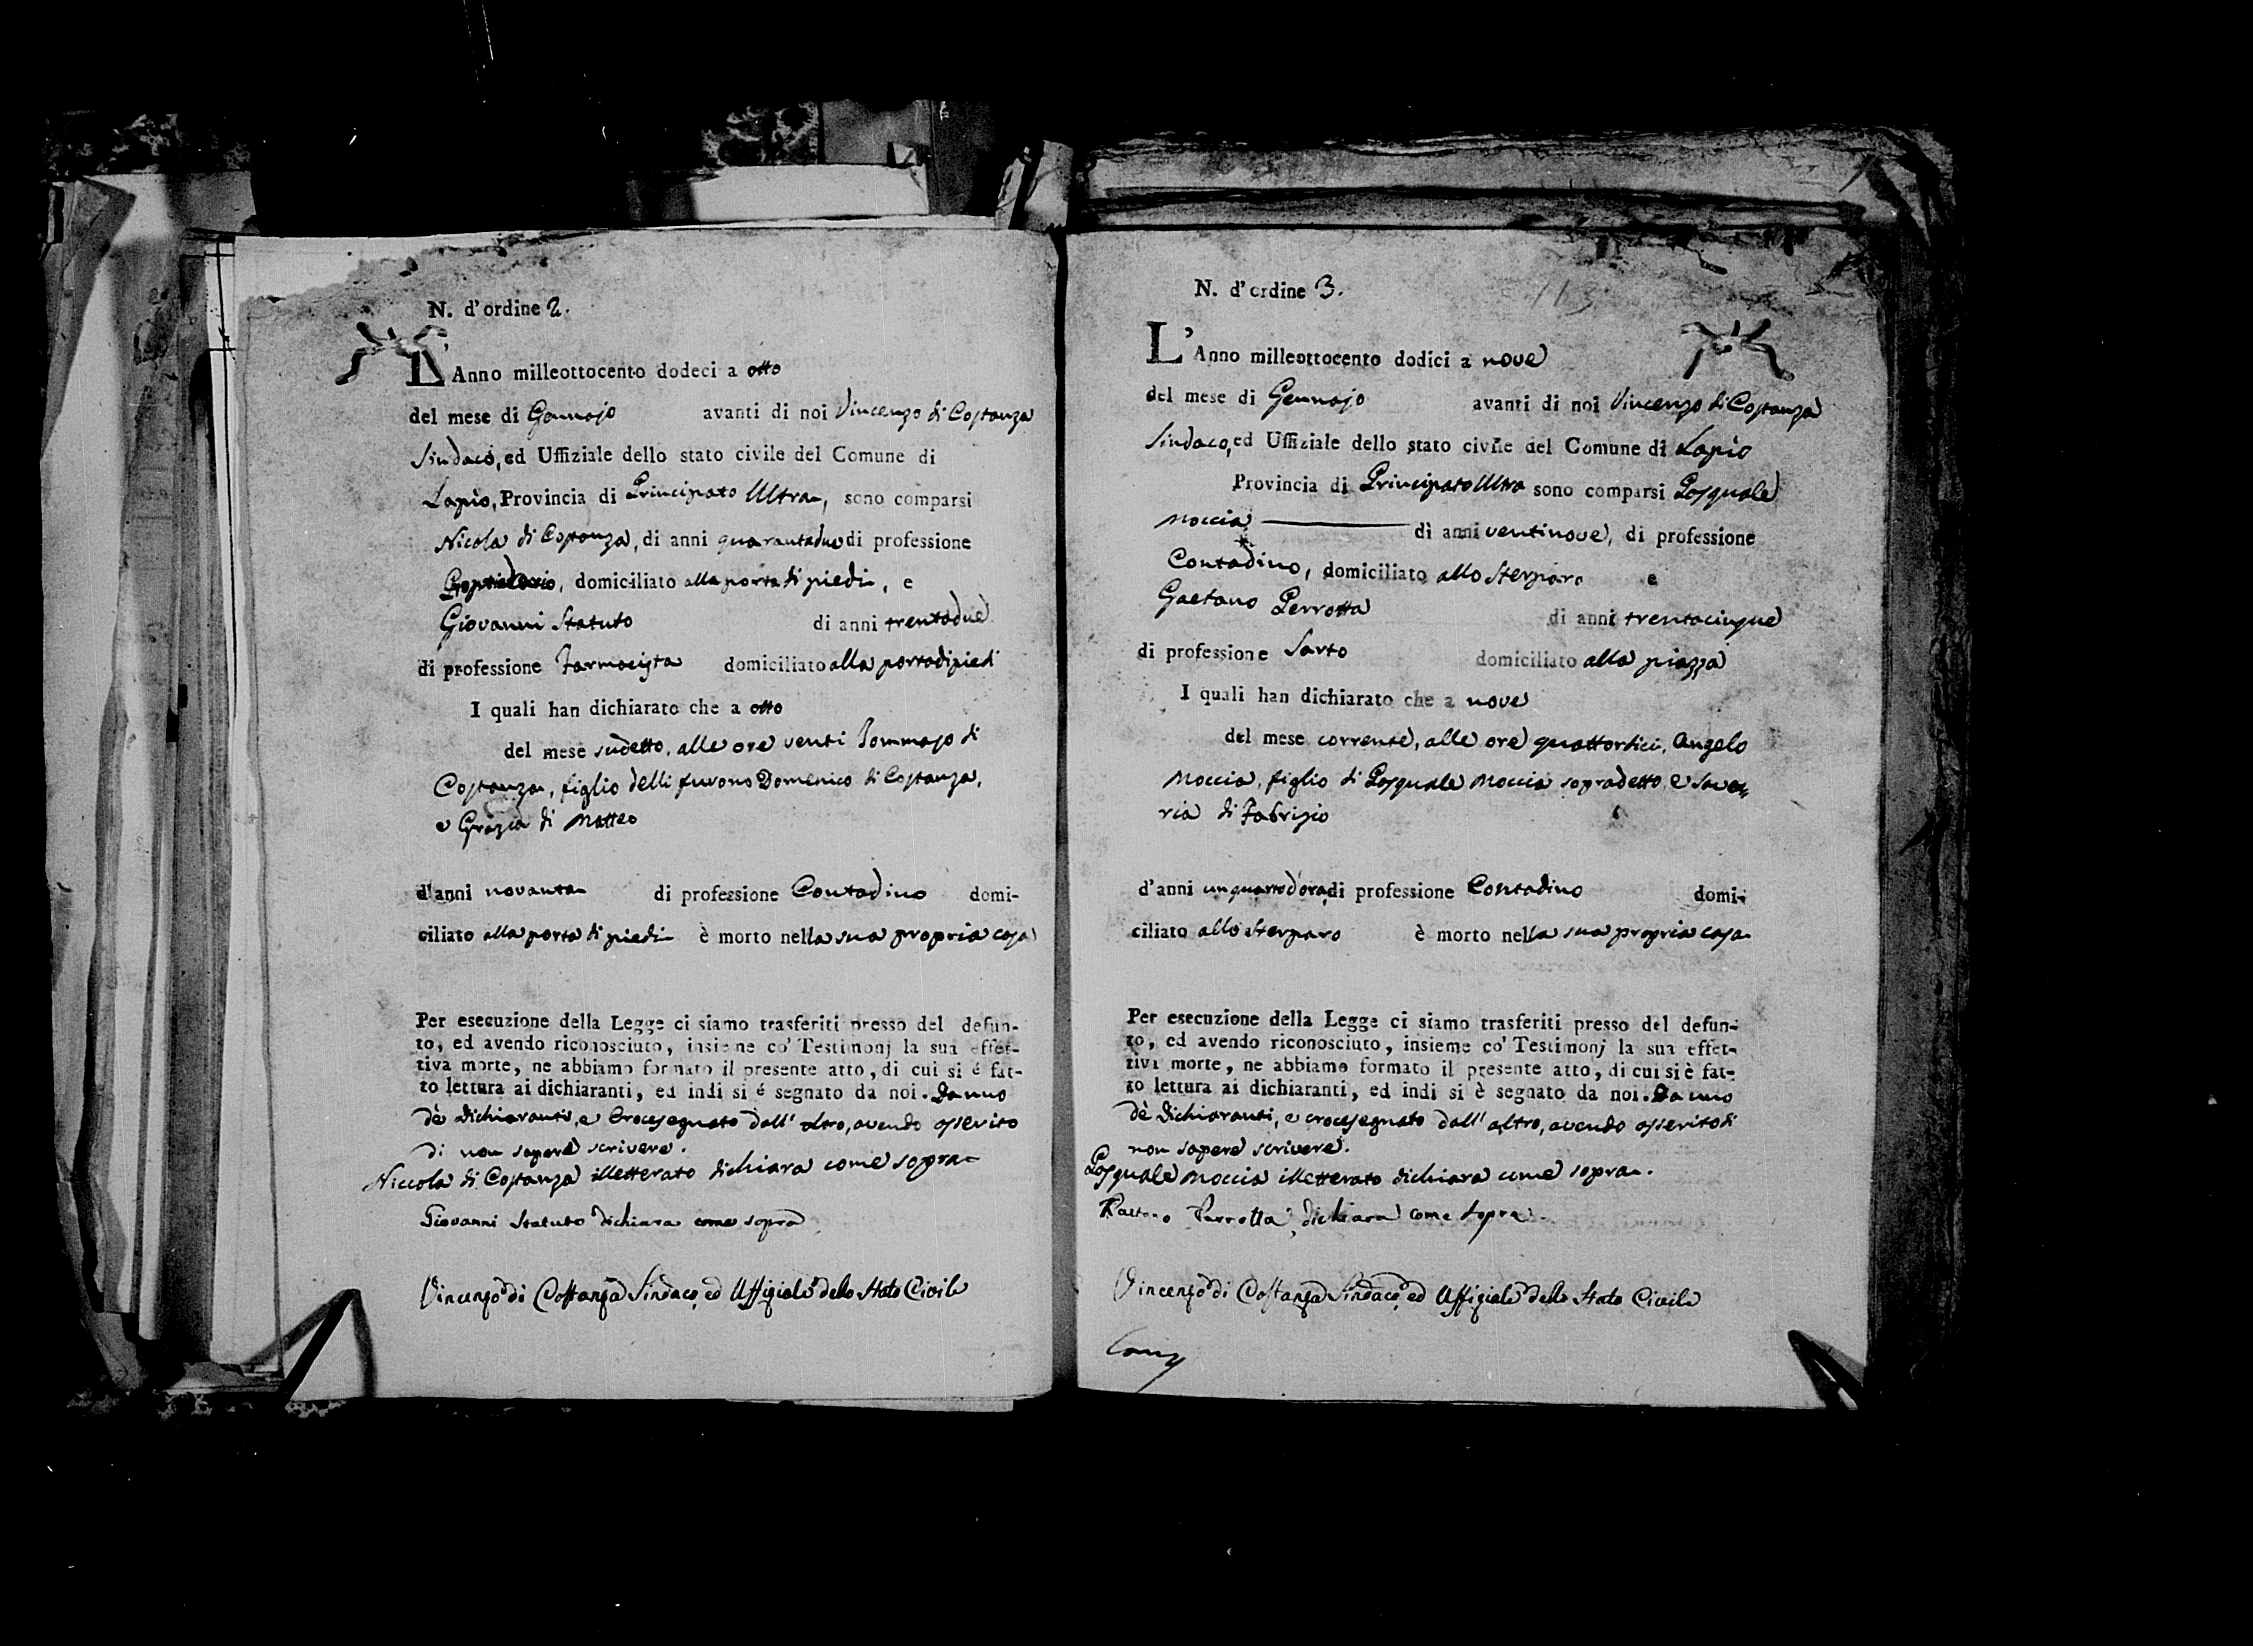 N. d'ordine 2.
L'Anno milleottocento dodeci a otto
del mese di Gennajo avanti di noi Vincenzo di Costanza
Sindaco, ed Uffiziale dello stato civile del Comune di
Lapio, Provincia di Principato Ultra, sono comparsi
Nicola di Costanza, di anni quarantadue di professione
domiciliato alla porta di piedi, e
Giovanni Statuto di anni trentadue
di professione Farmacista domiciliato alla porta di piedi
I quali han dichiarato che a otto
del mese sudetto, alle ore venti Tommaso di
Costanza, figlio delli furono Domenico di Costanza,
e Grazia di Matteo
d'anni novanta di professione Contadino domi-
ciliato alla porta di piedi è morto nella sua propria casa
Per esecuzione della Legge ci siamo trasferiti presso del defun-
to, ed avendo riconosciuto, insieme co' Testimonj la sua effet-
tiva morte, ne abbiamo formato il presente atto, di cui si é fat-
to lettura ai dichiaranti, ed indi si é segnato da noi. Da uno
dè dichiaranti, e crocesegnato dall' altro, avendo asserito
di non sapere scrivere.
Niccola di Costanza illetterato dichiara come sopra
Giovanni Statuto dichiara come sopra
Vincenzo di Costanza Sindaco, ed Uffiziale dello Stato Civile
N. d'ordine 3.
L'Anno milleottocento dodici a nove
del mese di Gennajo avanti di noi Vincenzo di Costanza
Sindaco, ed Uffiziale dello stato civile del Comune di Lapio
Provincia di Principato Ultra sono comparsi Pasquale
Moccia di anni ventinove, di professione
Contadino, domiciliato allo Sterparo e
Gaetano Perrotta di anni trentacinque
di professione Sarto domiciliato alla piazza
I quali han dichiarato che a nove
del mese corrente, alle ore quattordici, Angelo
Moccia, figlio di Pasquale Moccia sopradetto e Save=
ria di Fabrizio
d'anni un quarto d'ora, di professione Contadino domi-
ciliato allo Sterparo è morto nella sua propria casa
Per esecuzione della Legge ci siamo trasferiti presso del defun-
to, ed avendo riconosciuto, insieme co' Testimonj la sua effet-
tiva morte, ne abbiamo formato il presente atto, di cui si è fat-
to lettura ai dichiaranti, ed indi si è segnato da noi. Da uno
dè dichiaranti, e crocesegnato dall' altro, avendo asserito di
non sapere scrivere.
Pasquale Moccia illetterato dichiara come sopra.
Perrotta dichiara come sopra
Vincenzo di Costanza Sindaco, ed Uffiziale dello Stato Civile